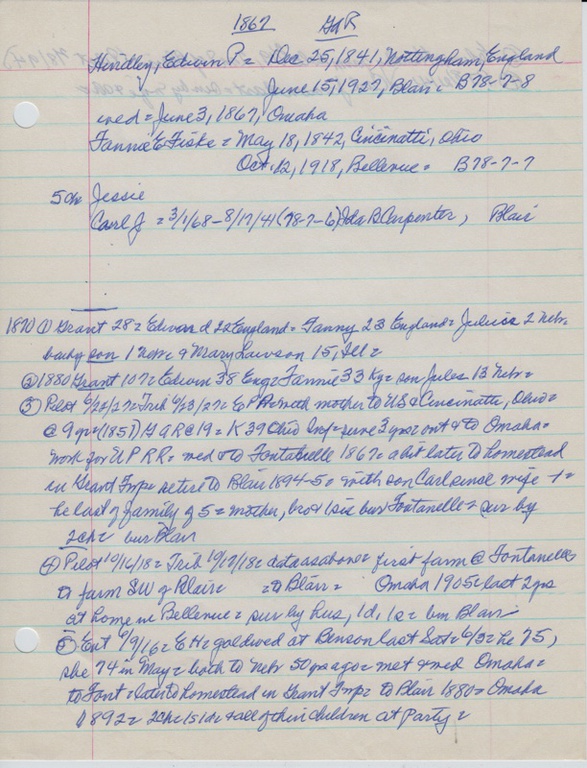 1867 GAR
Hindley, Edwin P = Dec 25, 1841, Nottingham, England
June 15, 1927, Blair = B78-7-8
wed = June 3, 1867, Omaha
Fannie E Fiske = May 18, 1842, Cincinatti, Ohio
Oct. 12, 1918, Bellevue = B78-7-7
5 ch Jessie
Carl J = 3/1/68 - 8/17/41 (78-7-6) Ida B Carpenter, Blair
1870 ① Grant 28 = Edward 22 England = Fanny 23 England = Julius 2 Nebr.
baby son 1 Nebr & Mary Lawson 15, Ill =
② 1880 Grant 107 = Edwin 38 Eng = Fannie 33 Ky = son Jules 13 Nebr =
③ Pilot 6/22/27 = Trib 6/23/27 = E P H = with mother to US & Cincinatti, Ohio =
@ 9 yr = (1851) GAR @ 19 = K 39 Ohio Inf = serve 3 yrs out & to Omaha =
work for UPRR = wed & to Fontanelle 1867 = a bit later to homestead
in Grant Twp = retire to Blair 1894-5 = with son Carl since wife +=
he last of family of 5 = mother, bro & 1 sis bur Fontanelle = sur by
2 ch = bur Blair
④ Pilot 10/16/18 = Trib 10/17/18 = data as above = first farm @ Fontanelle
to farm SW of Blair = to Blair = Omaha 1905 = last 2 yrs
at home in Bellevue = sur by hus, 1 d, 1 s = bur Blair
⑤ Ent 6/9/16 = E H = gold wed at Benson last Sat = 6/3 = he 75,
she 74 in May = both to Nebr 50 yrs ago = met & wed Omaha =
to Font = later to homestead in Grant Twp = to Blair 1880 = Omaha
1892 = 2 ch = 1 s 1 d = & all of their children at party =